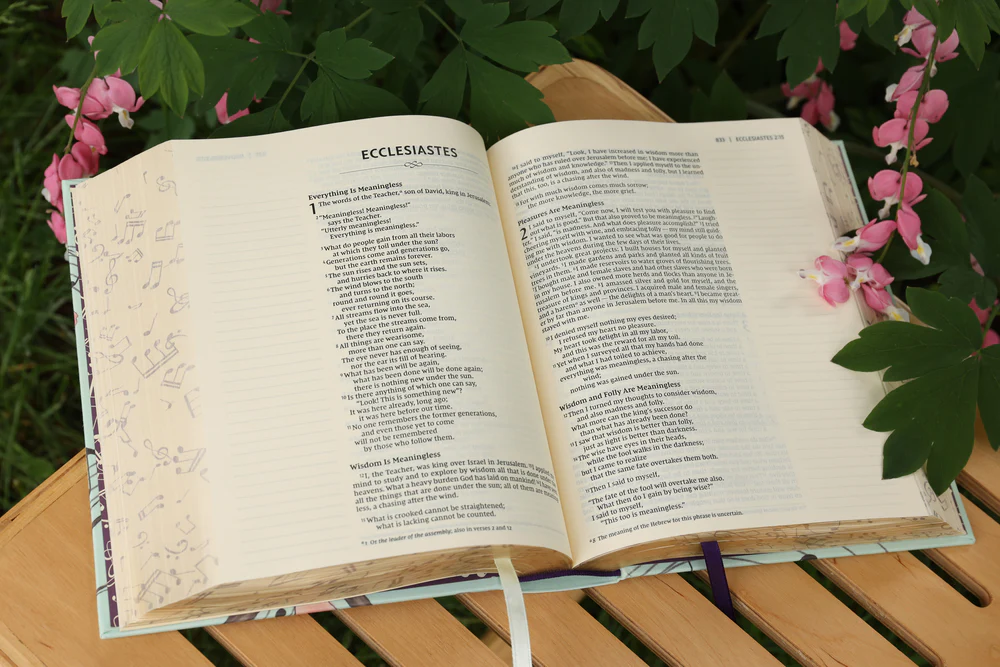 ECCLESIASTES
Everything Is Meaningless
1 The words of the Teacher,ᵃ son of David, king in Jerusalem:
2 "Meaningless! Meaningless!"
says the Teacher.
"Utterly meaningless!
Everything is meaningless."
3 What do people gain from all their labors
at which they toil under the sun?
4 Generations come and generations go,
but the earth remains forever.
5 The sun rises and the sun sets,
and hurries back to where it rises.
6 The wind blows to the south
and turns to the north;
round and round it goes,
ever returning on its course.
7 All streams flow into the sea,
yet the sea is never full.
To the place the streams come from,
there they return again.
8 All things are wearisome,
more than one can say.
The eye never has enough of seeing,
nor the ear its fill of hearing.
9 What has been will be again,
what has been done will be done again;
there is nothing new under the sun.
10 Is there anything of which one can say,
"Look! This is something new"?
It was here already, long ago;
it was here before our time.
11 No one remembers the former generations,
and even those yet to come
will not be remembered
by those who follow them.
Wisdom Is Meaningless
12 I, the Teacher, was king over Israel in Jerusalem. 13 I applied my
mind to study and to explore by wisdom all that is done under the
heavens. What a heavy burden God has laid on mankind! 14 I have seen
all the things that are done under the sun; all of them are meaning-
less, a chasing after the wind.
15 What is crooked cannot be straightened;
what is lacking cannot be counted.
ᵃ 1 Or the leader of the assembly; also in verses 2 and 12
830 | ECCLESIASTES 2:16
16 I said to myself, "Look, I have increased in wisdom more than
anyone who has ruled over Jerusalem before me; I have experienced
much of wisdom and knowledge." 17 Then I applied myself to the un-
derstanding of wisdom, and also of madness and folly, but I learned
that this, too, is a chasing after the wind.
18 For with much wisdom comes much sorrow;
the more knowledge, the more grief.
Pleasures Are Meaningless
2 I said to myself, "Come now, I will test you with pleasure to find
out what is good." But that also proved to be meaningless. 2 "Laugh-
ter," I said, "is madness. And what does pleasure accomplish?" 3 I tried
cheering myself with wine, and embracing folly — my mind still guid-
ing me with wisdom. I wanted to see what was good for people to do
under the heavens during the few days of their lives.
4 I undertook great projects: I built houses for myself and planted
vineyards. 5 I made gardens and parks and planted all kinds of fruit
trees in them. 6 I made reservoirs to water groves of flourishing trees.
7 I bought male and female slaves and had other slaves who were born
in my house. I also owned more herds and flocks than anyone in Je-
rusalem before me. 8 I amassed silver and gold for myself, and the
treasure of kings and provinces. I acquired male and female singers,
and a haremᵃ as well — the delights of a man's heart. 9 I became great-
er by far than anyone in Jerusalem before me. In all this my wisdom
stayed with me.
10 I denied myself nothing my eyes desired;
I refused my heart no pleasure.
My heart took delight in all my labor,
and this was the reward for all my toil.
11 Yet when I surveyed all that my hands had done
and what I had toiled to achieve,
everything was meaningless, a chasing after the
wind;
nothing was gained under the sun.
Wisdom and Folly Are Meaningless
12 Then I turned my thoughts to consider wisdom,
and also madness and folly.
What more can the king's successor do
than what has already been done?
13 I saw that wisdom is better than folly,
just as light is better than darkness.
14 The wise have eyes in their heads,
while the fool walks in the darkness;
but I came to realize
that the same fate overtakes them both.
15 Then I said to myself,
"The fate of the fool will overtake me also.
What then do I gain by being wise?"
I said to myself,
"This too is meaningless."
ᵃ 8 The meaning of the Hebrew for this phrase is uncertain.